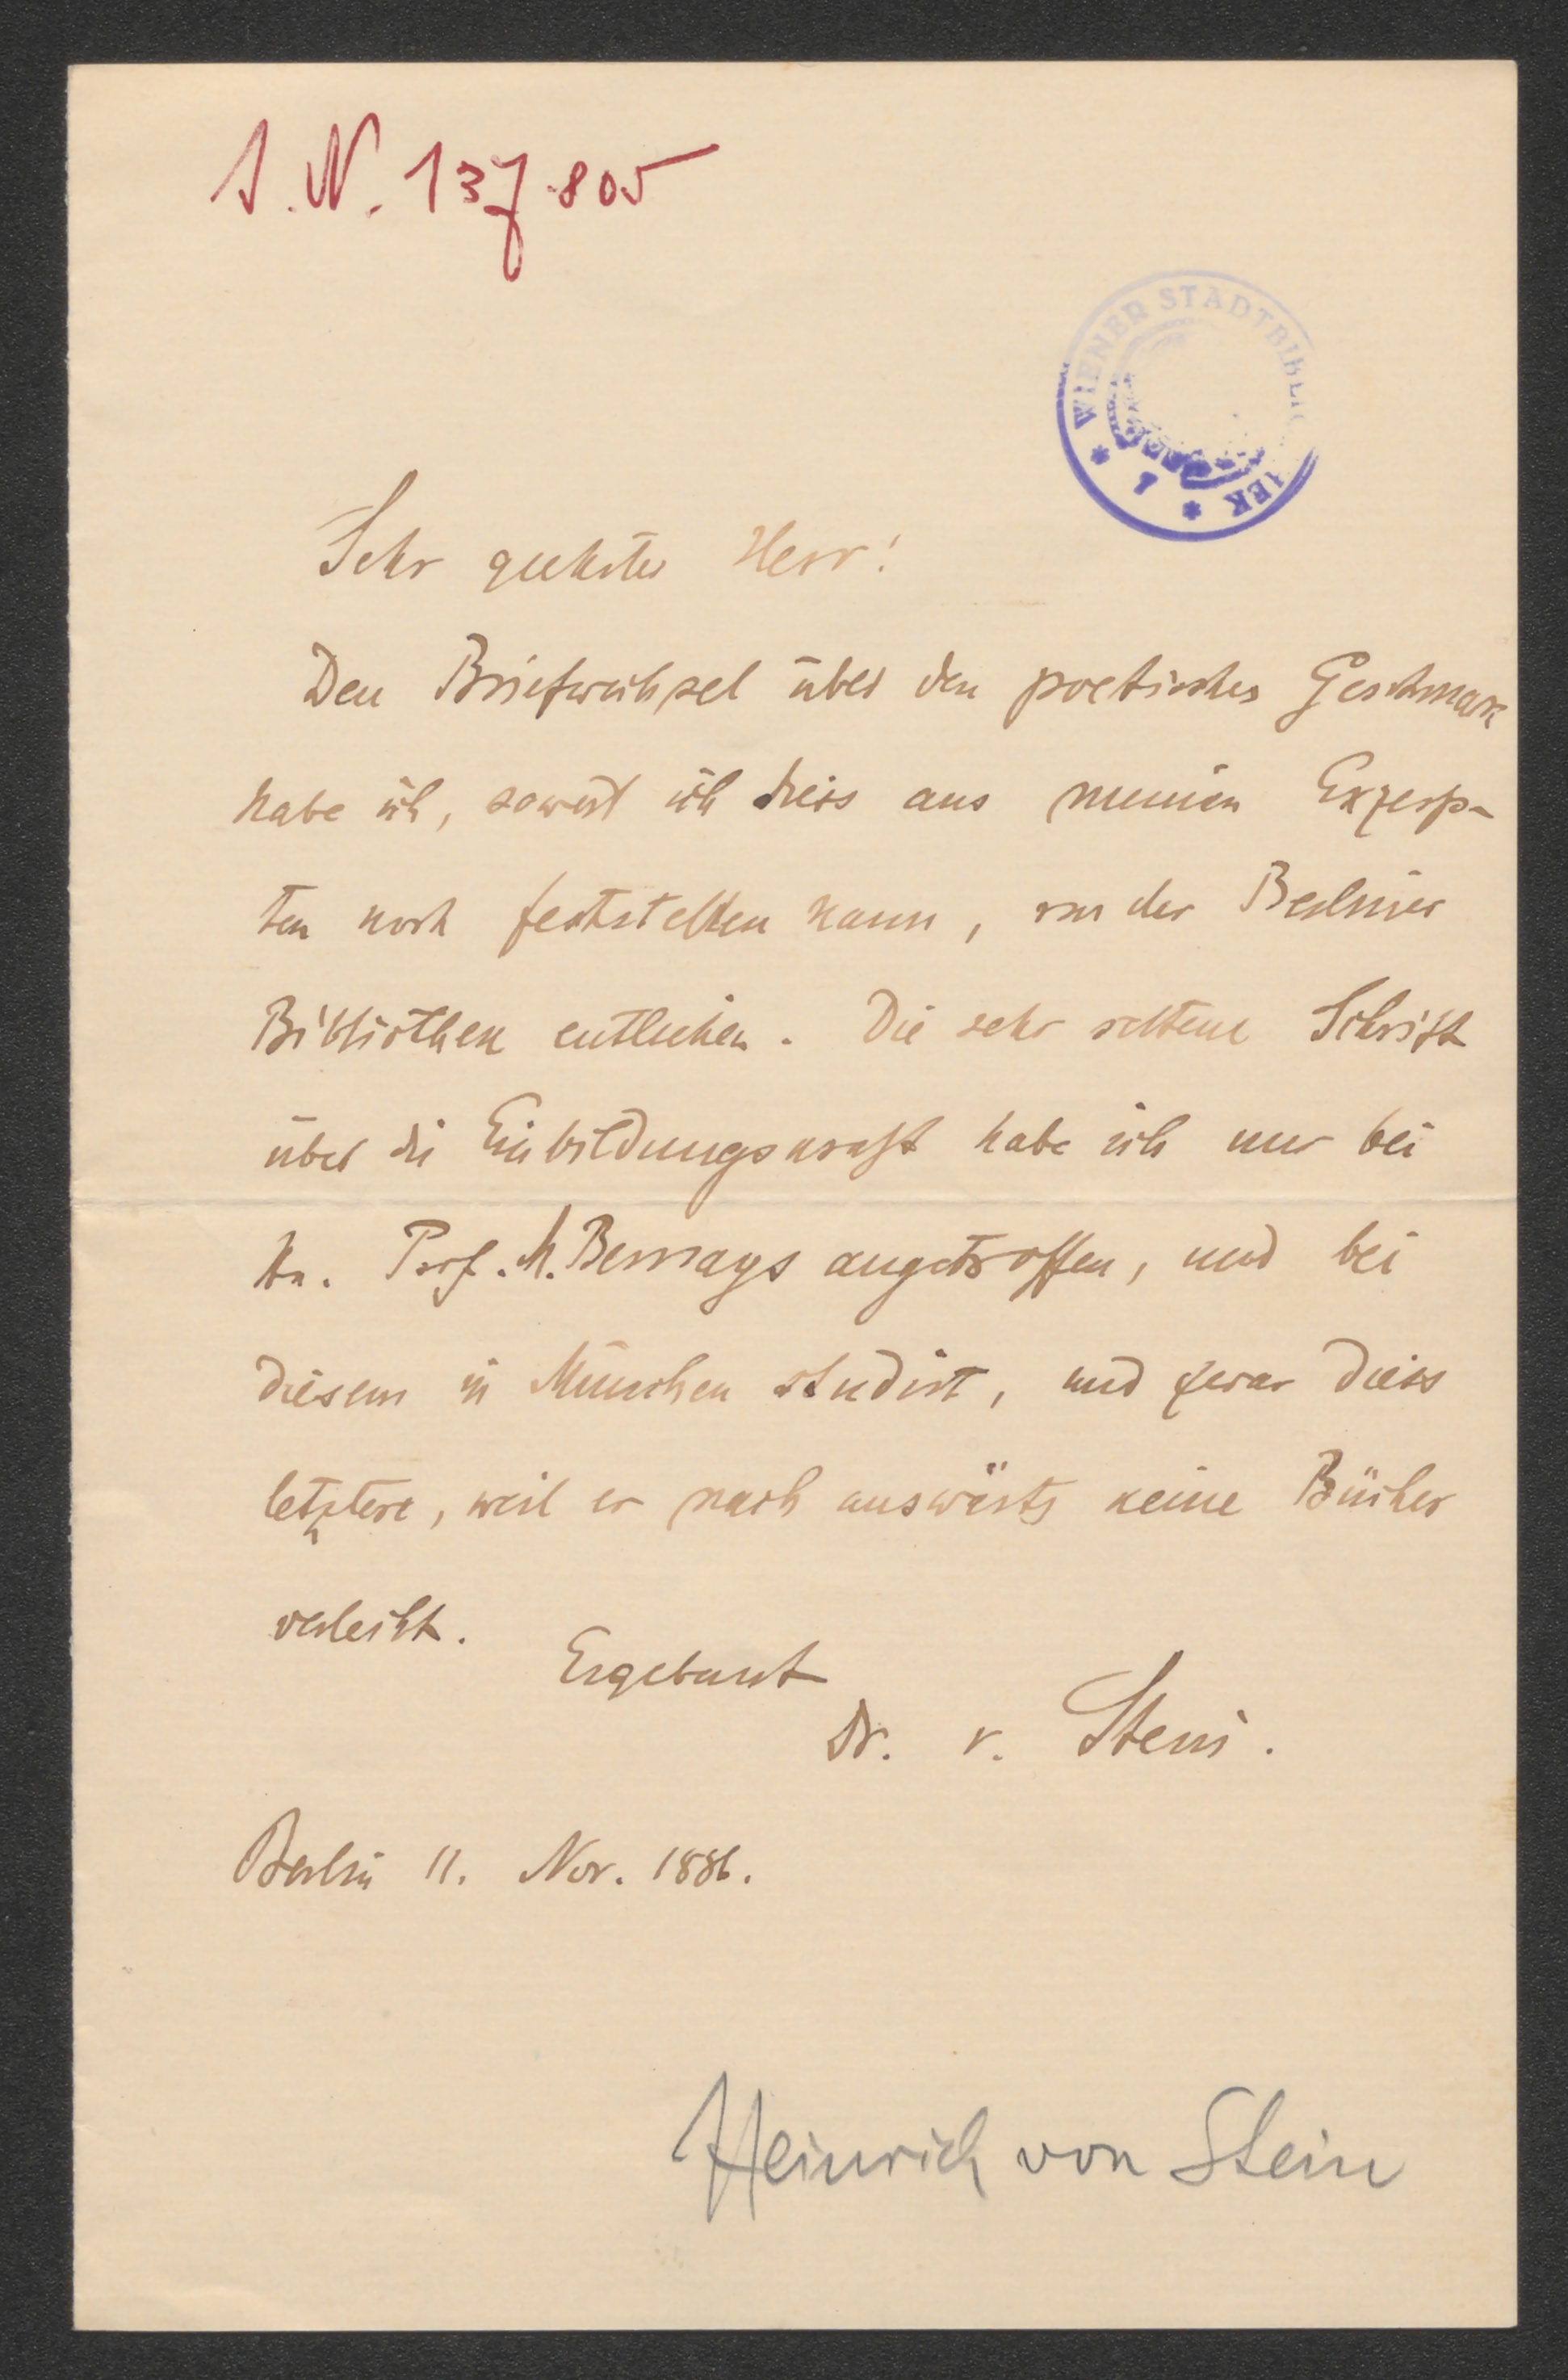 I. N. 137.805
WIENER STADTBIBLIOTHEK
* 1 *
Sehr geehrter Herr!
Den Briefwechsel über den poetischen Geschmack
habe ich, soweit ich diess aus meinen Exzerp-
ten noch feststellen kann, von der Berliner
Bibliothek entliehen. Die sehr seltene Schrift
über die Einbildungskraft habe ich nur bei
Hn. Prof. M. Bernays angetroffen, und bei
diesem in München studirt, und zwar diess
letztere, weil er nach auswärts keine Bücher
verleiht.
Ergebenst
Dr. v. Stein.
Berlin 11. Nov. 1886.
Heinrich von Stein